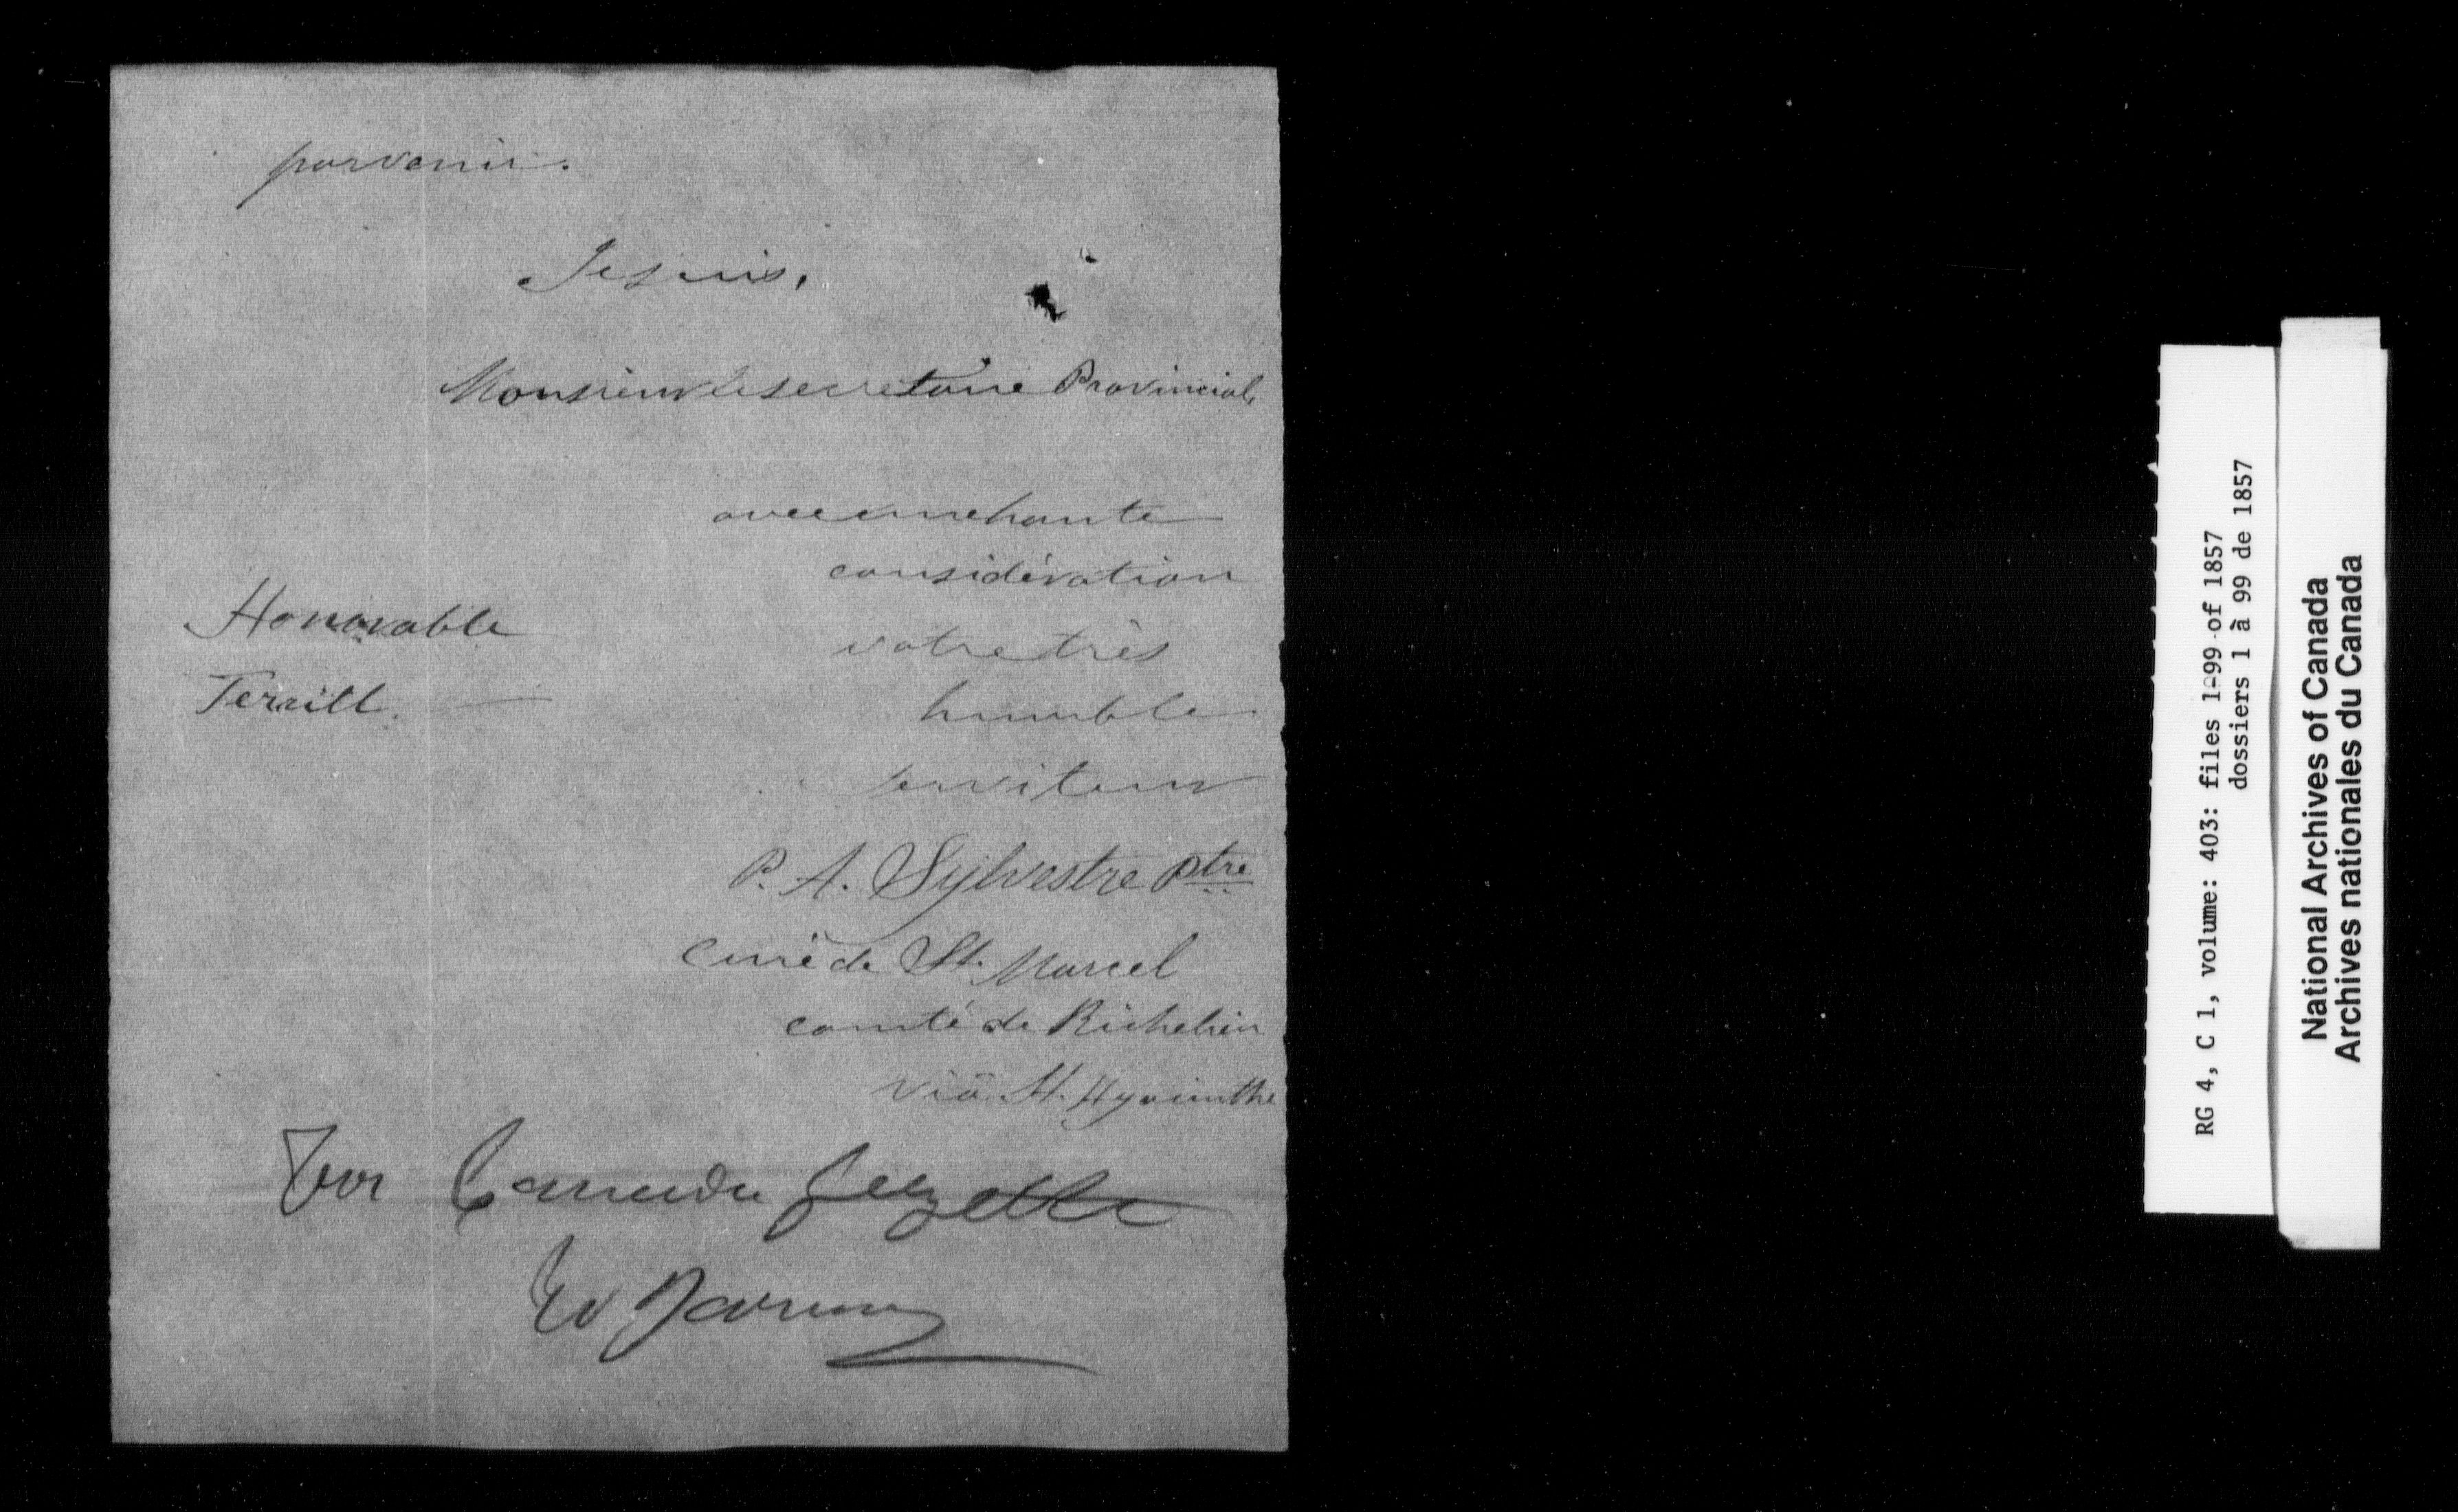 parvenir.
Je suis,
Monsieur le secretaire Provincial,
avec une haute
considération
votre très
humble
serviteur
Honorable
Terrill.
P. A. Sylvestre Ptre
Curé de St. Marcel
comté de Richelieu
viâ St. Hyacinthe
For Canada Gazette
RG 4, C 1, volume: 403: files 1-99 of 1857
dossiers 1 à 99 de 1857
National Archives of Canada
Archives nationales du Canada